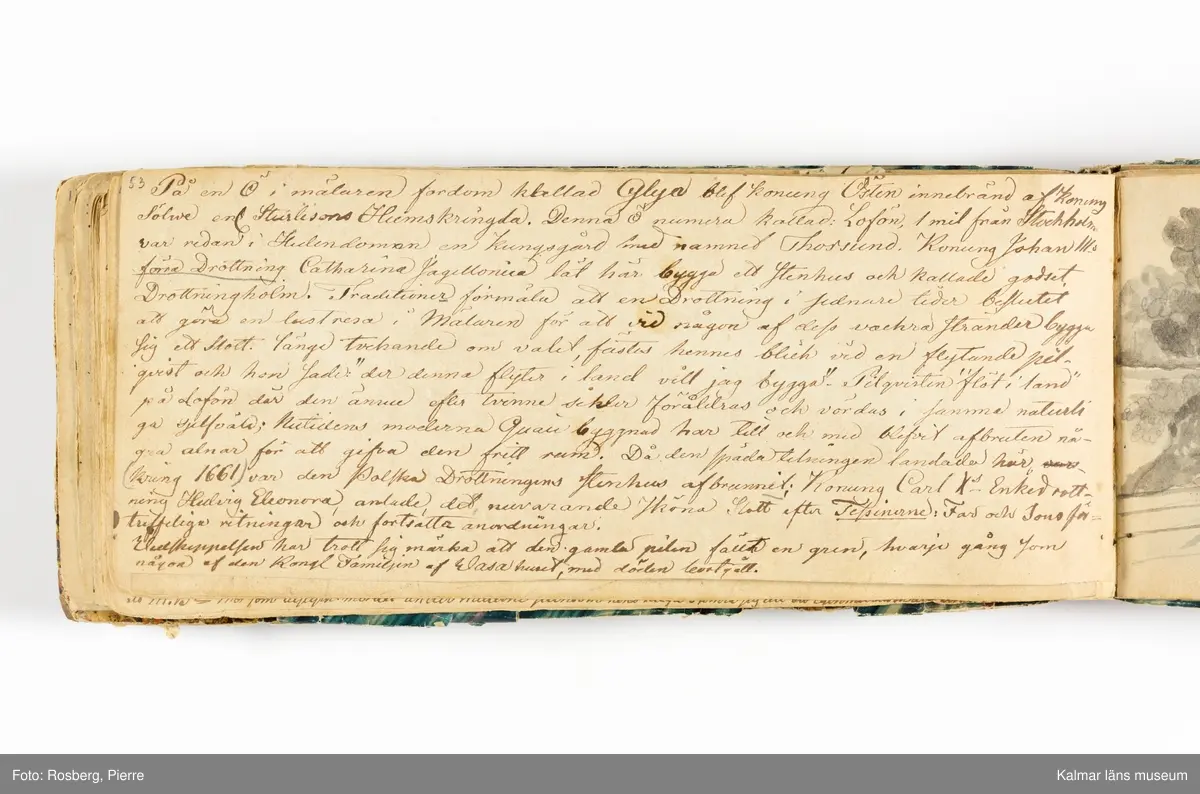 53 På en Ö i mälaren fordom kallad Gylja blef konung Östen innebränd af Konung
Sölwe enl Sturlisons Heimskringla. Denna Ö numera kallad: Lofön, 1 mil från Stockholm
var redan i Hedendomen en kungsgård med namnet Thorslund. Konung Johan III:s
förra Drottning Catharina Jagellonica lät här bygga ett stenhus och kallade godset,
Drottningholm. Traditioner förmäla att en Drottning i sednare tider beslutet
att göra en lustresa i Mälaren för att vid någon af dess vackra stränder bygga
sig ett slott. Länge tvekande om valet, fästes hennes blick vid en flytande pil-
qvist och hon sade: "der denna flyter i land vill jag bygga". Pilqvisten "flöt i land"
på Lofön där den ännu efter tvenne sekler föråldras och vördas i samma naturli
ga sjelfvåld; Nutidens moderna Quai byggnad har till och med blifvit afbruten nå-
gra alnar för att gifva den fritt rum. Då den späda telningen landade här,
(kring 1661) var den Polska Drottningens stenhus afbrunnit; Konung Carl X:s Enkedrott-
ning Hedvig Eleonora, anlade, det, nuvarande sköna Slott efter Tessinerne: Far och Sons för-
träffeliga ritningar och fortsatta anordningar.
Vidskeppelsen har trott sig märka att den gamla pilen fällt en gren, hvarje gång som
någon af den Kongl Familjen af Wasa huset, med döden bortgått.